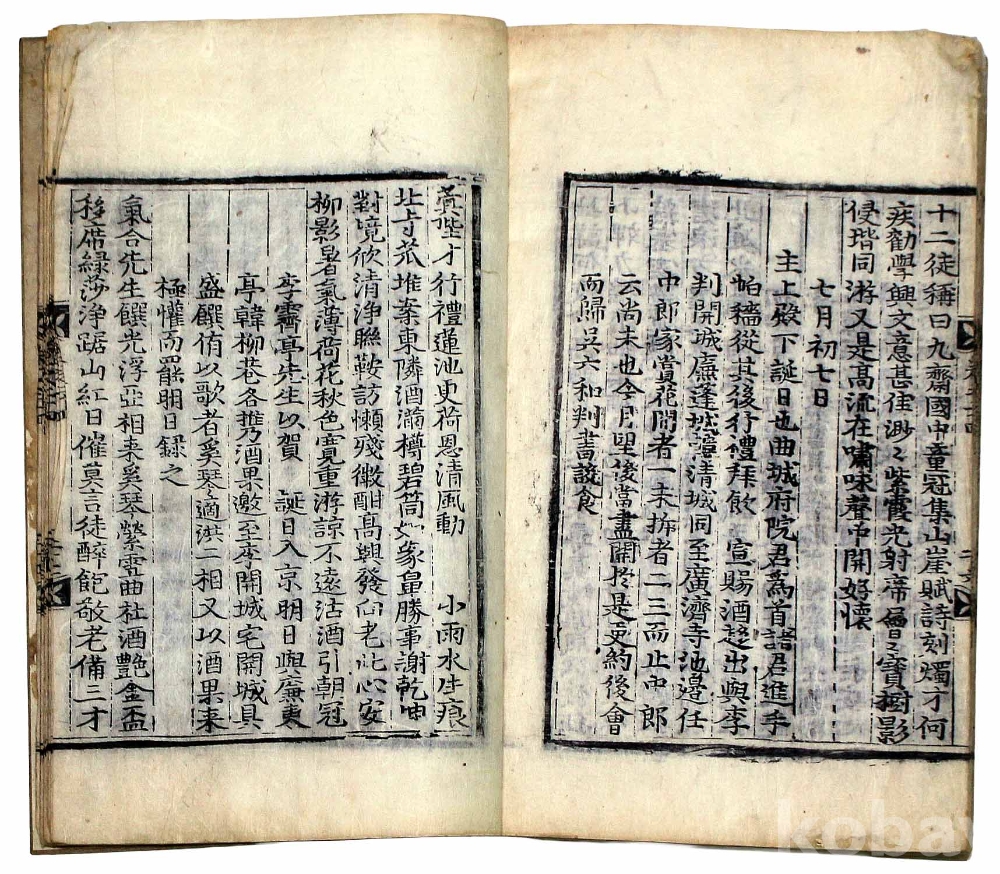 十二徒稱曰九齋國中童冠集山崖賦詩刻燭才何
疾勸學興文意甚佳渺〻紫霞光射帝層〻寶樹影
侵堦同游又是高流在嘯咏聲中開好懷
七月初七日
主上殿下誕日也曲城府院君爲首諸君進手
帕褚從其後行禮拜飮 宣賜酒趍出與李
判開城廉蓬城瑞淸城同至廣濟寺池邊任
中郎家賞花開者一未拆者二三而止中郎
云尚未也今月望後當盡開扵是更約後會
而歸吳六和判書設食
蓂階才行禮蓮池更荷恩清風動 小雨水生痕
上寸花堆案東隣酒滿樽碧筒如象鼻勝事謝乾坤
對境欣清淨聯鞍訪懶殘微酣髙興發白老此心安
柳影暑氣薄荷花秋色寬重游諒不遠沽酒引朝冠
李霽亭先生以賀 誕日入京明日與廉東
亭韓柳巷各携酒果邀至李開城宅開城具
盛饌侑以歌者奚琴適洪二相又以酒果来
極懽而罷明日録之
氣合先生饌光浮亞相来奚琴縈雪曲社酒艶金盃
移席緑莎浄踞山紅日催莫言徒醉飽敬老備三才
koba